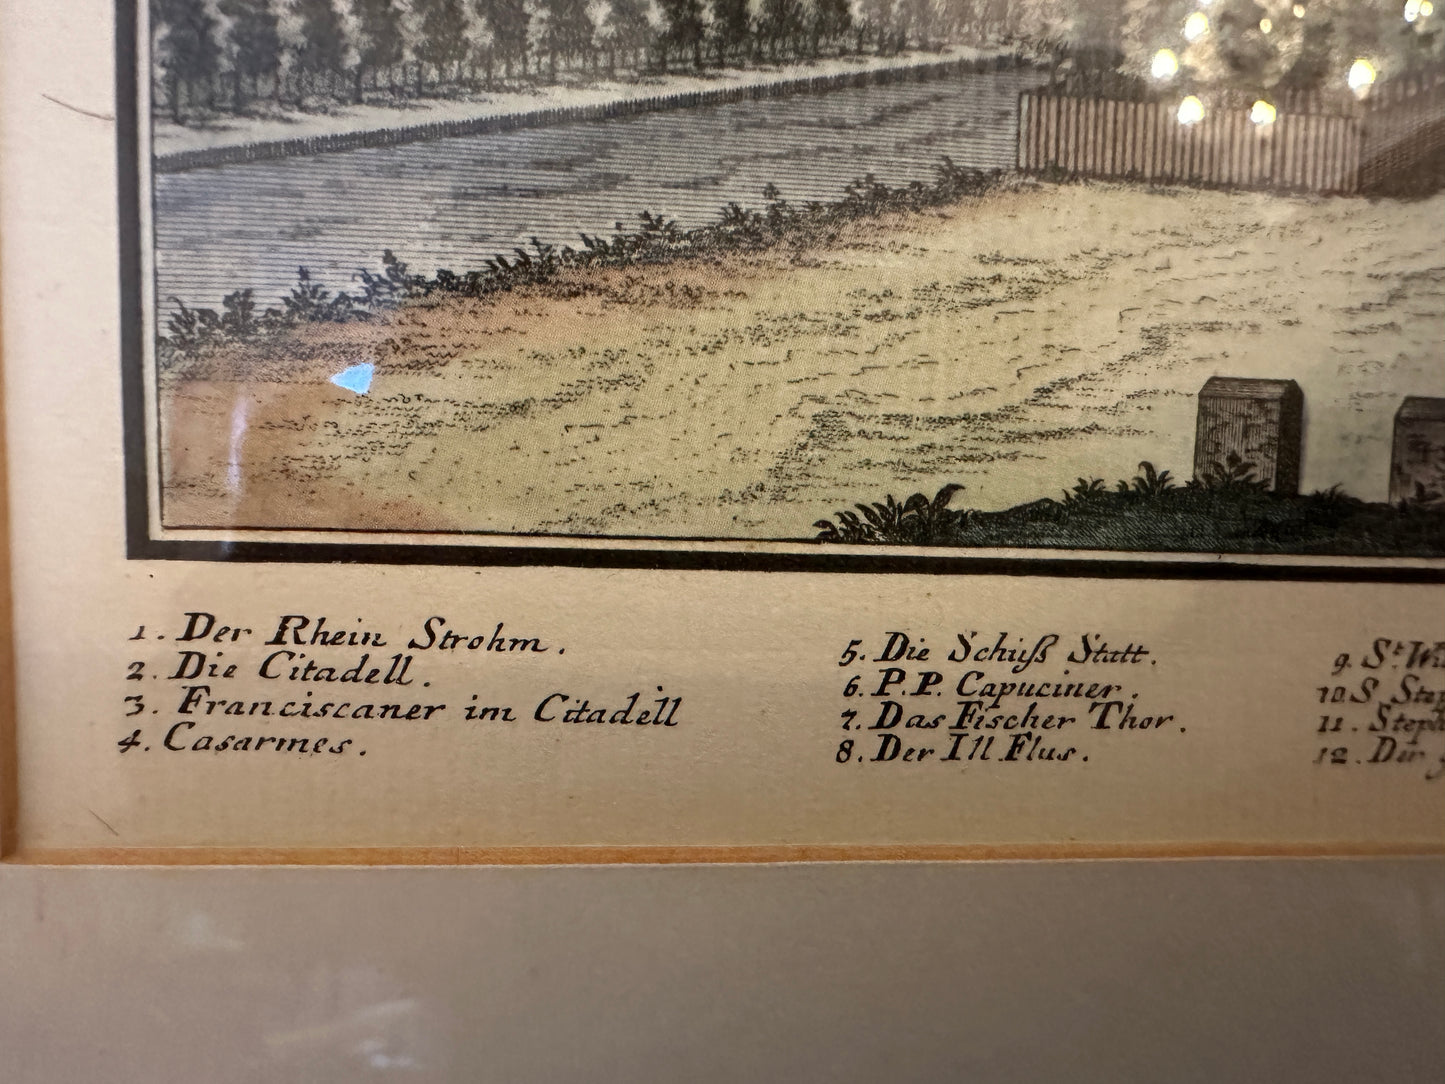 1. Der Rhein Strohm.
2. Die Citadell.
3. Franciscaner im Citadell
4. Casarmes.
5. Die Schuß Statt.
6. P.P. Capuciner.
7. Das Fischer Thor.
8. Der Ill Flus.
9. St.
10. S
11.
12. Der